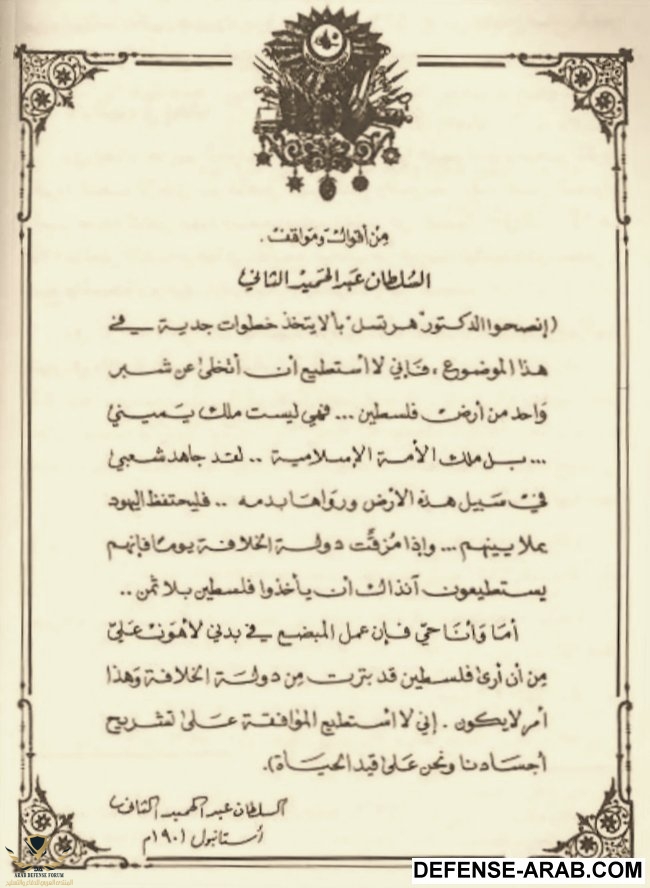 مِن أقوال ومَواقف.
السُلطان عَبد الحَميد الثاني
(إنصحوا الدكتور "هرتسل" بألا يتخذ خطوات جدية في
هذا الموضوع، فَإني لا أستطيع أن أتخلىٰ عن شبر
وَاحد من أرض فلسطين ... فهي ليست ملك يَميني
... بل ملك الأمة الإسلامية .. لقد جاهد شعبي
في سَبيل هذه الأرض ورواها بدمه .. فليحتفظ اليهود
بملايينهم ... وإذا مُزقَت دولة الخلافة يومًا فإنهم
يستطيعون آنذاك أن يأخذوا فلسطين بلا ثمن ..
أما وَأنا حيّ فإن عمل المبضع في بدني لأهوَن عَليّ
مِن أن أرىٰ فلسطين قد بترت مِن دولة الخلافة وَهذا
أمر لا يكون. إني لا أستطيع الموافقة عَلىٰ تشريح
أجسَادنا ونحن عَلىٰ قيد الحيَاة).
السلطان عبد الحميد الثاني
أستانبول ١٩٠١م
ARAB DEFENSE FORUM
المنتدى العربي للدفاع والتسليح
DEFENSE-ARAB.COM